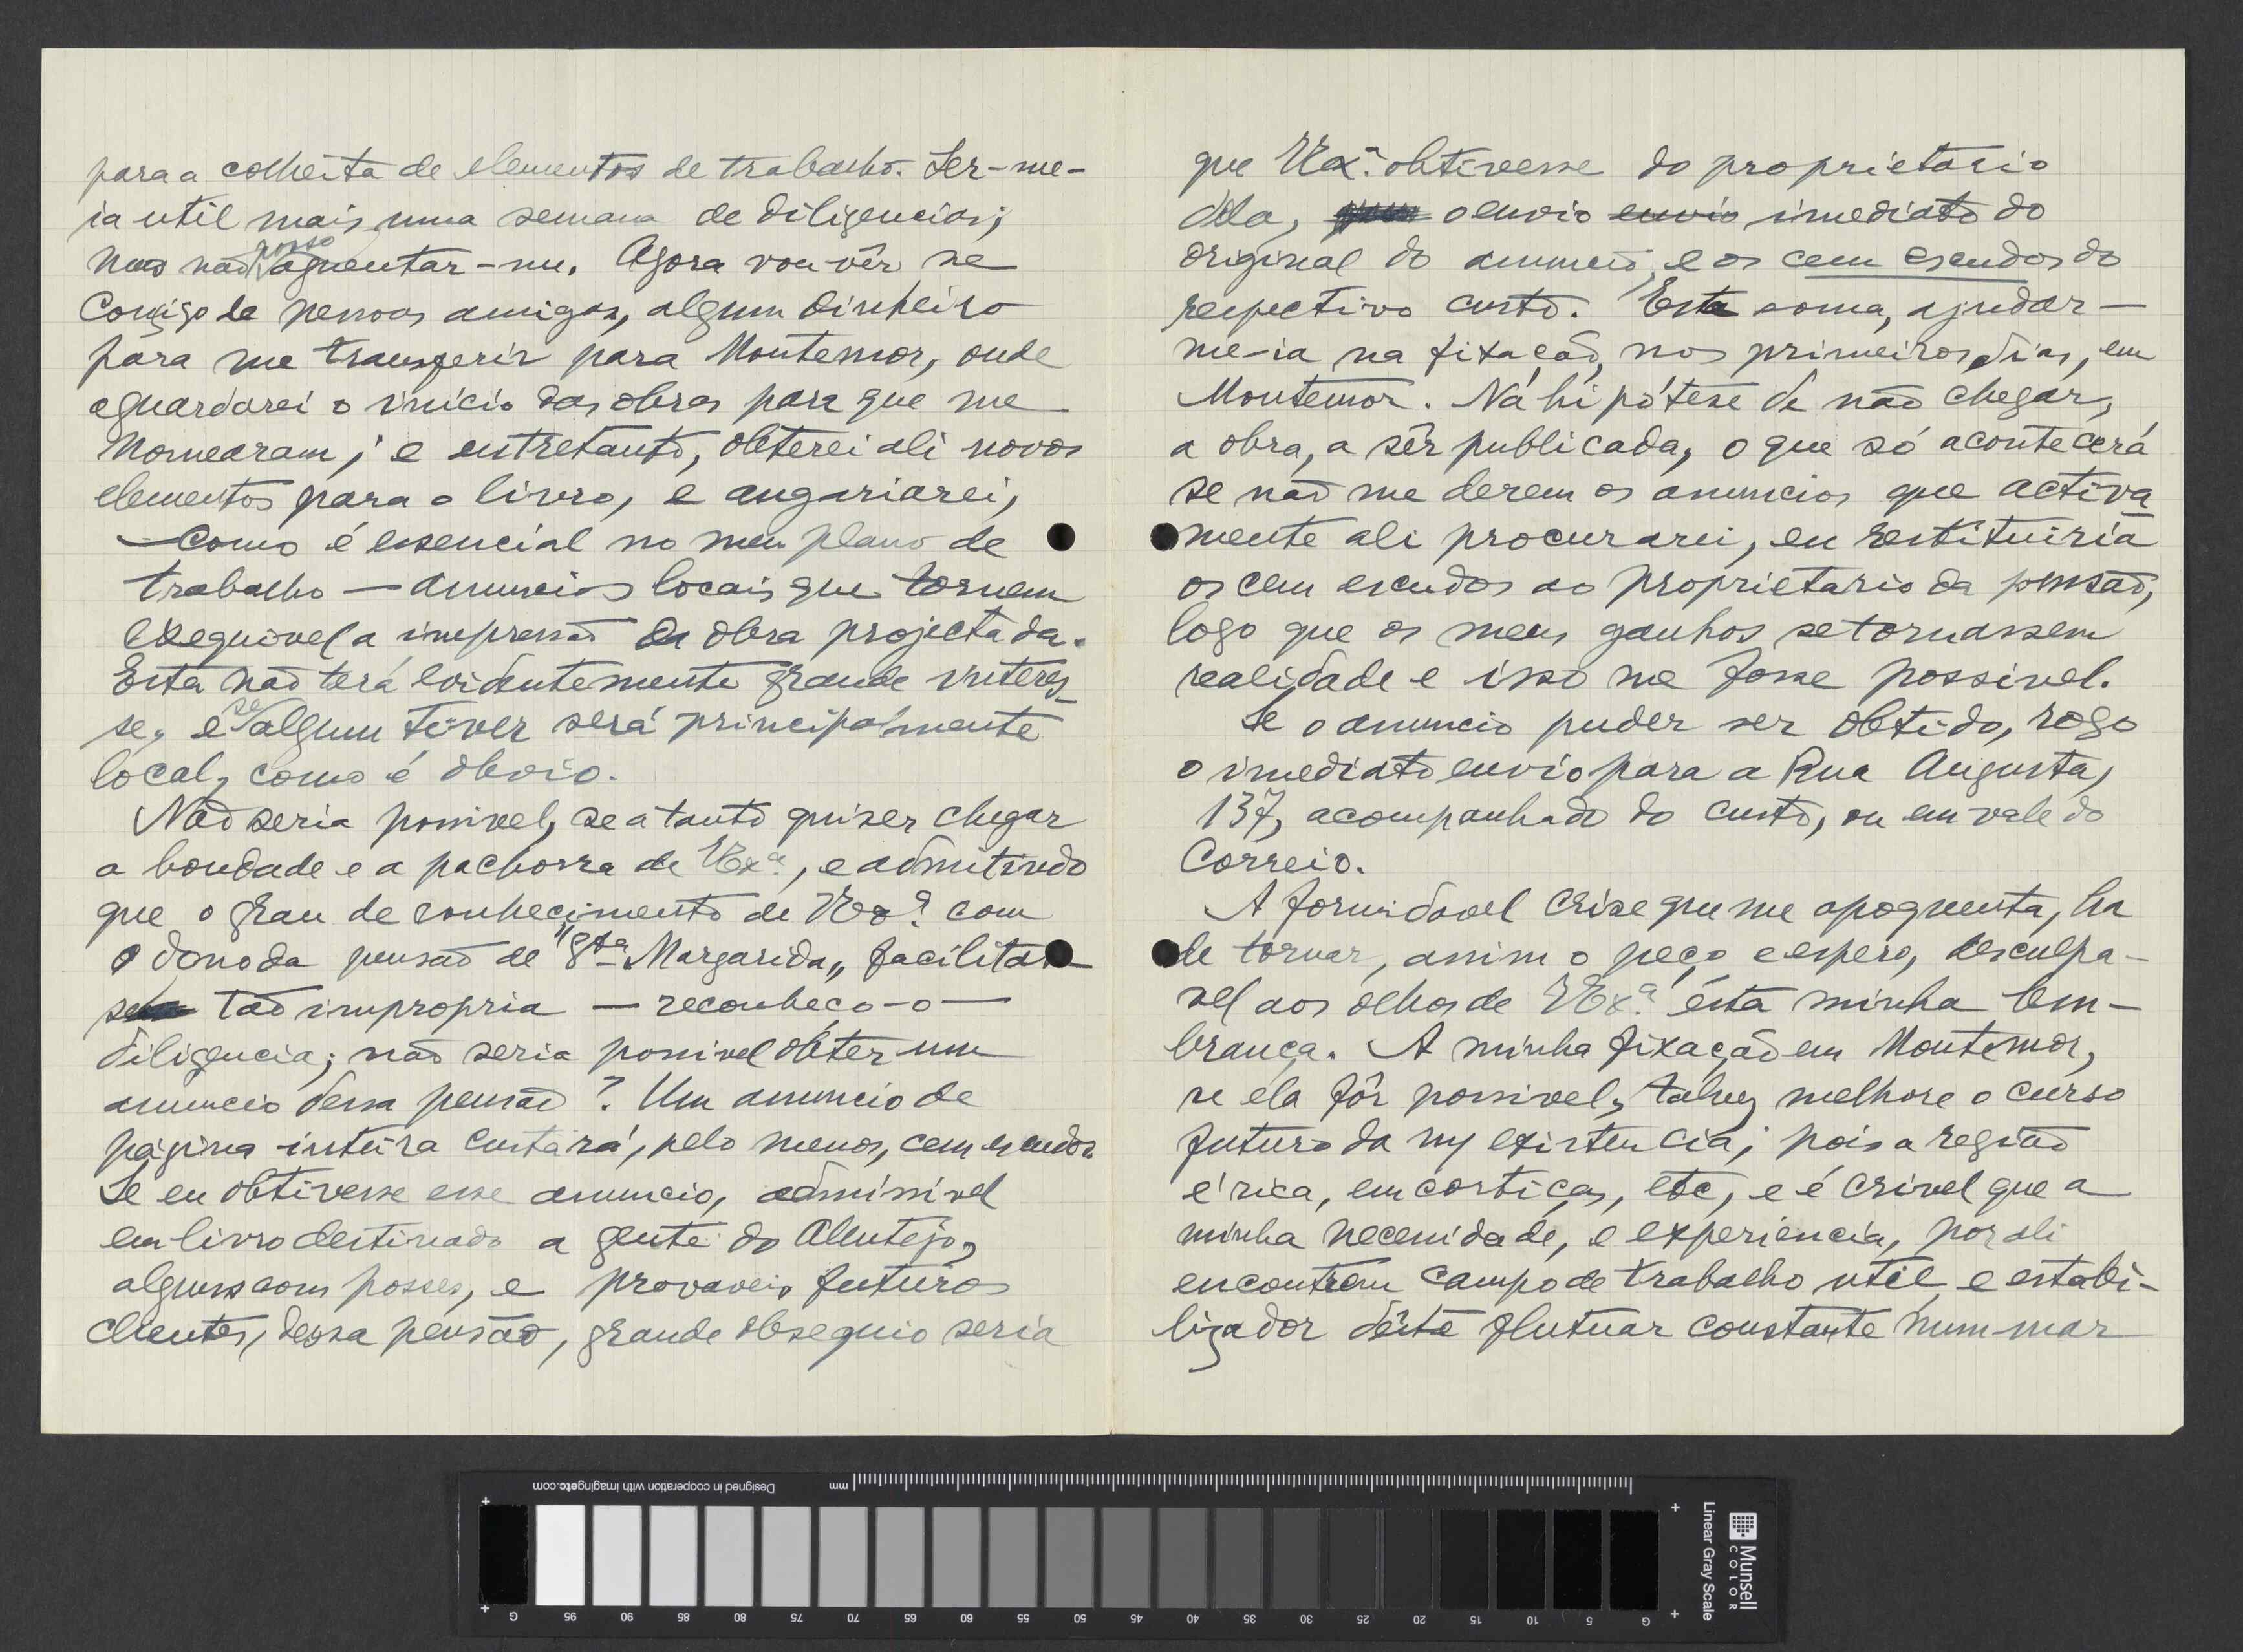 para a colheita de elementos de trabalho. Ser-me-
ia util mais uma semana de diligencias;
mas não posso aguentar-me. Agora vou vêr se
consigo de pessoas amigas, algum dinheiro
para me transferir para Montemor, onde
aguardarei o inicio das obras para que me
nomearam; e entretanto, obterei ali novos
elementos para o livro, e angariarei,
—como é essencial no meu plano de
trabalho — anuncios locais que tornem
exequivel a impressão da obra projectada.
Esta não terá evidentemente grande interes-
se, e se algum tiver será principalmente
local, como é obvio.
Não seria possivel, se a tanto quiser chegar
a bondade e a pachorra de VExª, e admitindo
que o grau de conhecimento de VExª com
o dono da pensão de "Stª Margarida„ facilita
tão impropria — reconheço-o —
diligencia; não seria possivel obter um
anuncio dessa pensão? Um anuncio de
página inteira custará, pelo menos, cem escudos.
Se eu obtivesse esse anuncio, admissivel
em livro destinado a gente do Alentejo,
alguns com posses, e provaveis futuros
clientes, dessa pensão, grande obsequio seria
que VExª obtivesse do proprietario
dela, o envio envio imediato do
original do anuncio, e os cem escudos do
respectivo custo. Esta soma, ajudar-
me-ia na fixação, nos primeiros dias, em
Montemor. Na hipótese de não chegar,
a obra, a sêr publicada, o que só acontecerá
se não me derem os anuncios que activa
mente ali procurarei, eu restituiria
os cem escudos ao proprietario da pensão,
logo que os meus ganhos se tornassem
realidade e isso me fosse possivel.
Se o anuncio puder ser obtido, rogo
o imediato envio para a Rua Augusta,
137, acompanhado do custo, ou em vale do
Correio.
A formidavel crise que me apoquenta, ha
de tornar, assim o peço e espero, desculpa-
vel aos olhos de VExª esta minha lem-
brança. A minha fixação em Montemor,
se ela fôr possivel, talvez melhore o curso
futuro da mª existencia; pois a região
é rica, em cortiças, etc, e é crivel que a
minha necessidade, e experiencia, por ali
encontrem campo de trabalho util e estabi-
lizador dêste flutuar constante num mar
Designed in cooperation with imagingetc.com
mm
Munsell
COLOR
Linear Gray Scale
G 95 90 85 80 75 70 65 60 55 50 45 40 35 30 25 20 15 10 5 G